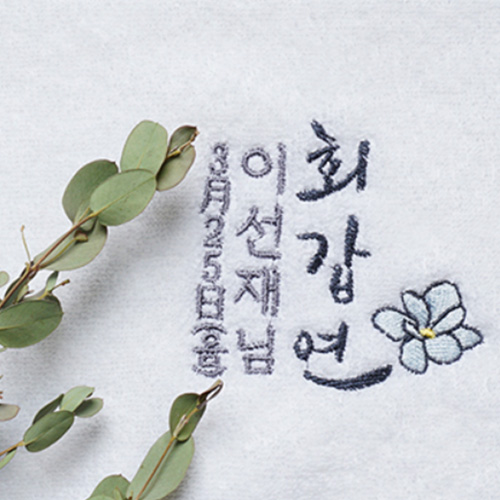 회갑연
이선재님
3月25日(音)